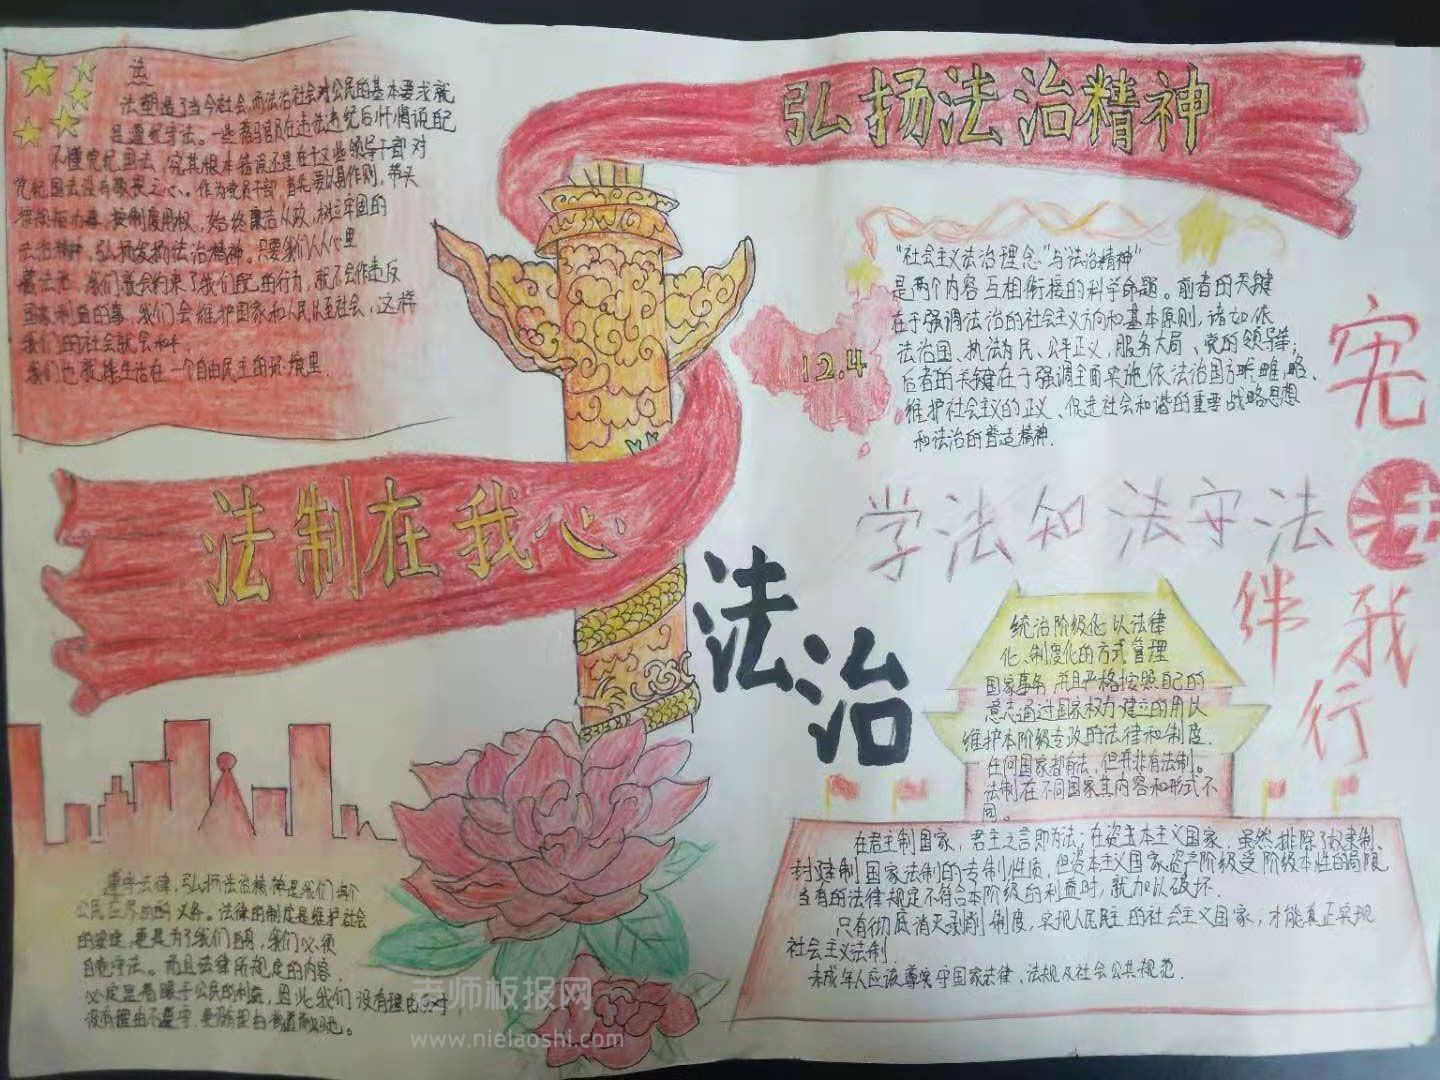 弘扬法治精神
法塑造了当今社会,而法治社会对公民的基本要求就
是遵纪守法。一些落马官员在违法违纪后忏悔说自己
不懂党纪国法,究其根本错误还是在于这些领导干部对
党纪国法没有敬畏之心。作为党员干部,首先要以身作则,带头
按制度用权,始终廉洁从政,树立牢固的
法治精神,弘扬发扬法治精神。只要我们人人心里
着法治,我们就会约束了我们自己的行为,就不会作违反
国家利益的事,我们会维护国家和人民以至社会,这样
我们的社会就会和平,
我们也就能生活在一个自由民主的环境里.
"社会主义法治理念"与"法治精神"
是两个内容互相衔接的科学命题。前者的关键
在于强调法治的社会主义方向和基本原则,诸如依
法治国、执法为民、公平正义,服务大局、党的领导等;
后者的关键在于强调全面实施依法治国方略、
维护社会主义的正义、促进社会和谐的重要战略思想
和法治的普适精神.
12.4
宪
法
伴
我
行
学法知法守法
法制在我心
法治
统治阶级化以法律
化、制度化的方式管理
国家事务,并且严格按照自己的
意志通过国家权力建立的用以
维护本阶级专政的法律和制度.
任何国家都有法,但并非有法制。
法制在不同国家其内容和形式不
同。
在君主制国家,君主之言即为法;在资本主义国家,虽然排除了奴隶制、
封建制国家法制的专制性质,但资本主义国家资产阶级受阶级本性的局限
当有的法律规定不符合本阶级的利益时,就加以破坏.
只有彻底消灭剥削制度,实现人民民主的社会主义国家,才能真正实现
社会主义法制.
未成年人应该尊守国家法律、法规及社会公共规范.
遵守法律,弘扬法治精神是我们每个
公民应尽的义务。法律的制定是维护社会
的安定,更是为了我们自身,我们必须
自觉守法。而且法律所规定的内容.
必定是着眼于公民的利益,因此我们没有理由
没有理由不遵守,
老师板报网
www.nielaoshi.com